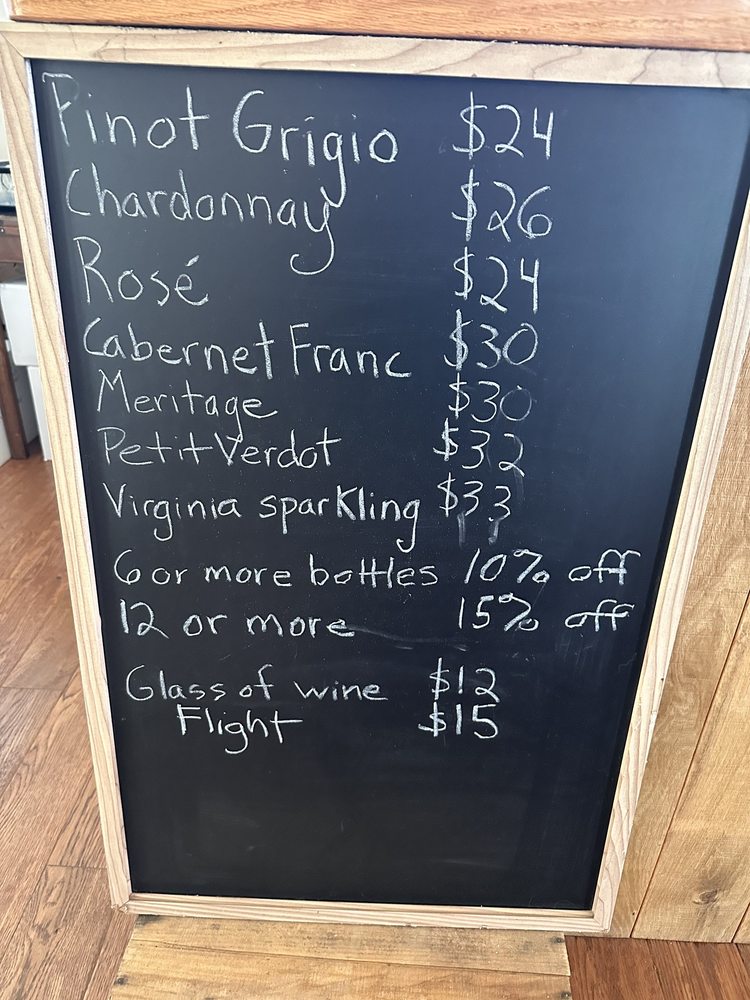 Pinot Grigio $24
Chardonnay $26
Rosé $24
Cabernet Franc $30
Meritage $30
Petit Verdot $32
Virginia sparkling $33
6 or more bottles 10% off
12 or more 15% off
Glass of wine $12
Flight $15